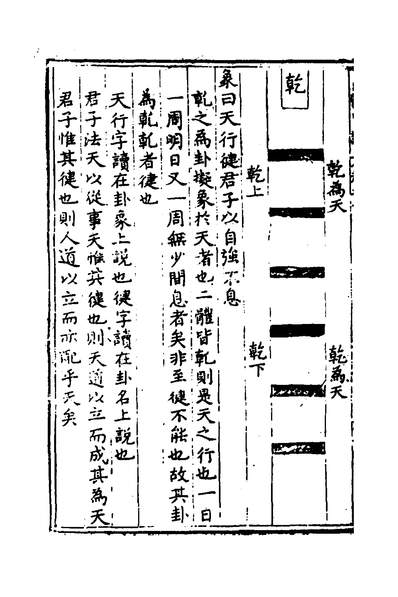 乾
乾為天
乾為天
乾上
乾下
象曰天行健君子以自強不息
乾之為卦擬象扵天者也二體皆乾則是天之行也一日
一周明日又一周無少間息者矣非至健不能也故其卦
為乾乾者健也
天行字讀在卦象上說也健字讀在卦名上說也
君子法天以從事天惟其健也則天道以立而成其為天
君子惟其健也則人道以立而亦配乎天矣